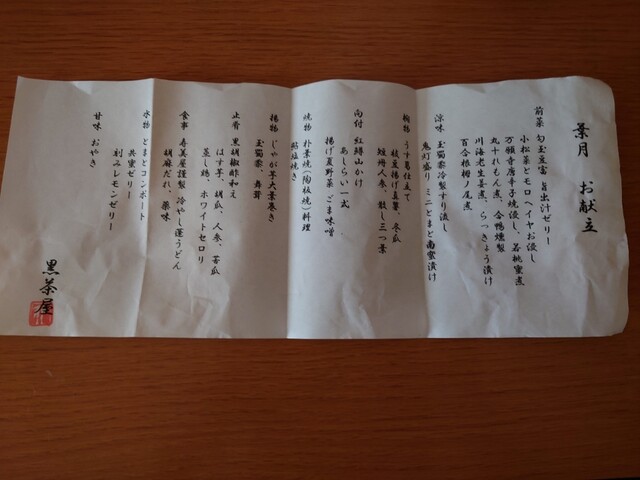 葉月　お献立
前菜 勾玉豆富 旨出汁ゼリー
小松菜とモロヘイヤお浸し
万願寺唐辛子焼浸し、若桃蜜煮
丸十れもん煮、合鴨燻製
川海老生姜煮、らっきょう漬け
百合根鼈ノ尾煮
涼味 玉蜀黍すり流し
鬼灯盛り ミニとまと南蛮漬け
椀物 うす葛仕立て
枝豆揚げ真薯、冬瓜
短冊人参、散し三つ葉
向付 紅鱒山かけ
あしらい一式
揚げ夏野菜 ごま味噌
焼物 朴葉焼(陶板焼)料理
鮎塩焼き
揚物 じゃが芋大葉巻き
玉蜀黍、舞茸
止肴 黒胡椒酢和え
はす芋、胡瓜、人参、苦瓜
蒸し鶏、ホワイトセロリ
食事 寿美屋謹製 冷やし蓬うどん
胡麻だれ、薬味
水物 とまとコンポート
共蜜ゼリー
刻みレモンゼリー
甘味 おやき
黒茶屋